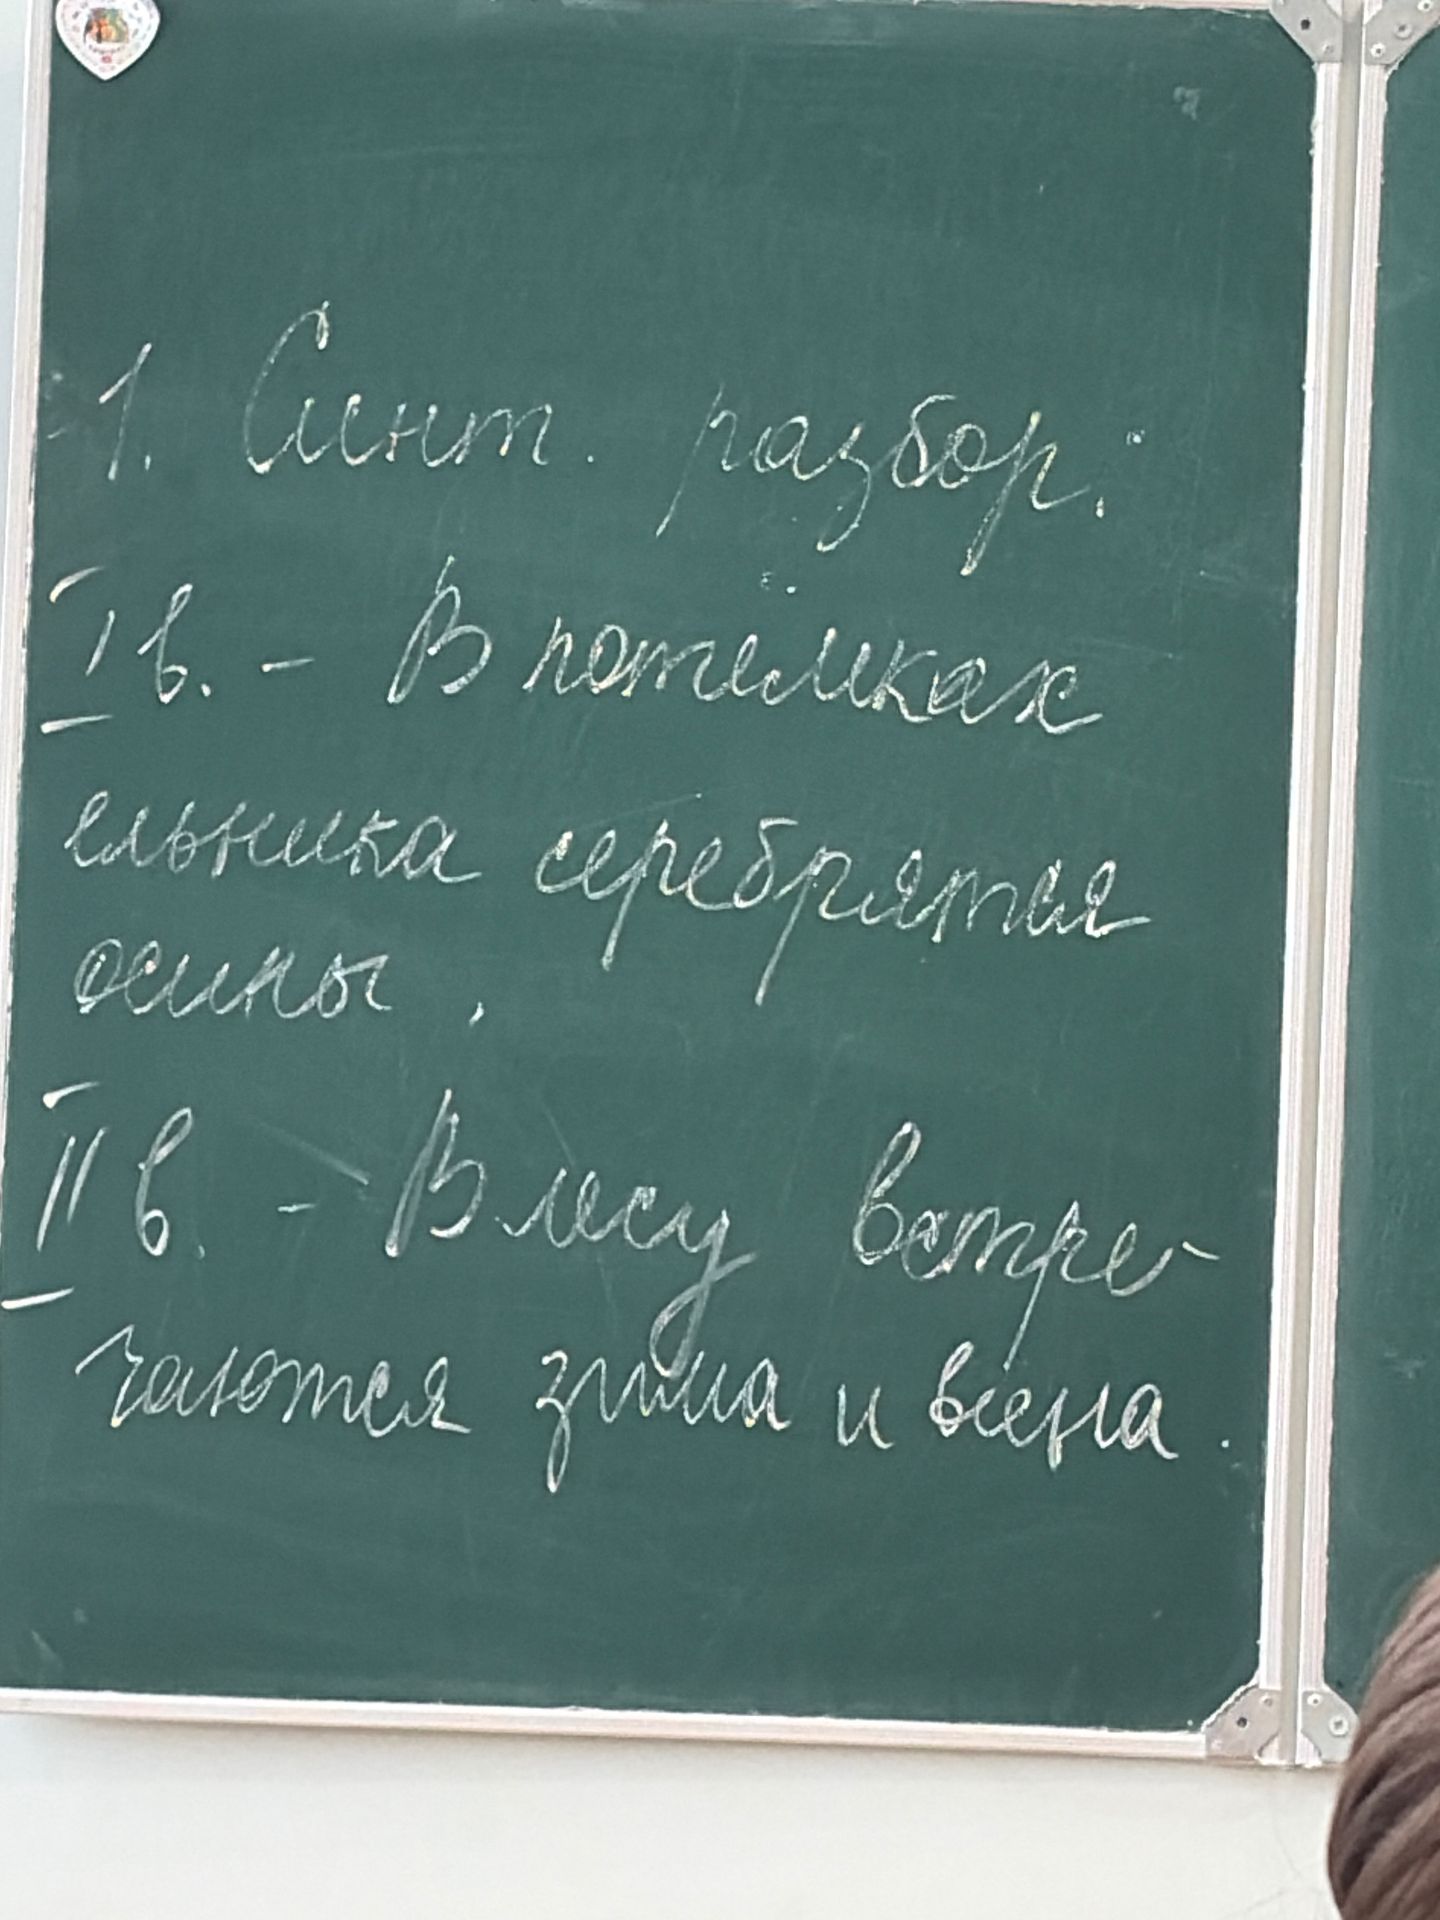 1. Синт. разбор:
I в. - В потёмках
ельника серебрятся
осины.
II в. - В лесу встре-
чаются зима и весна.